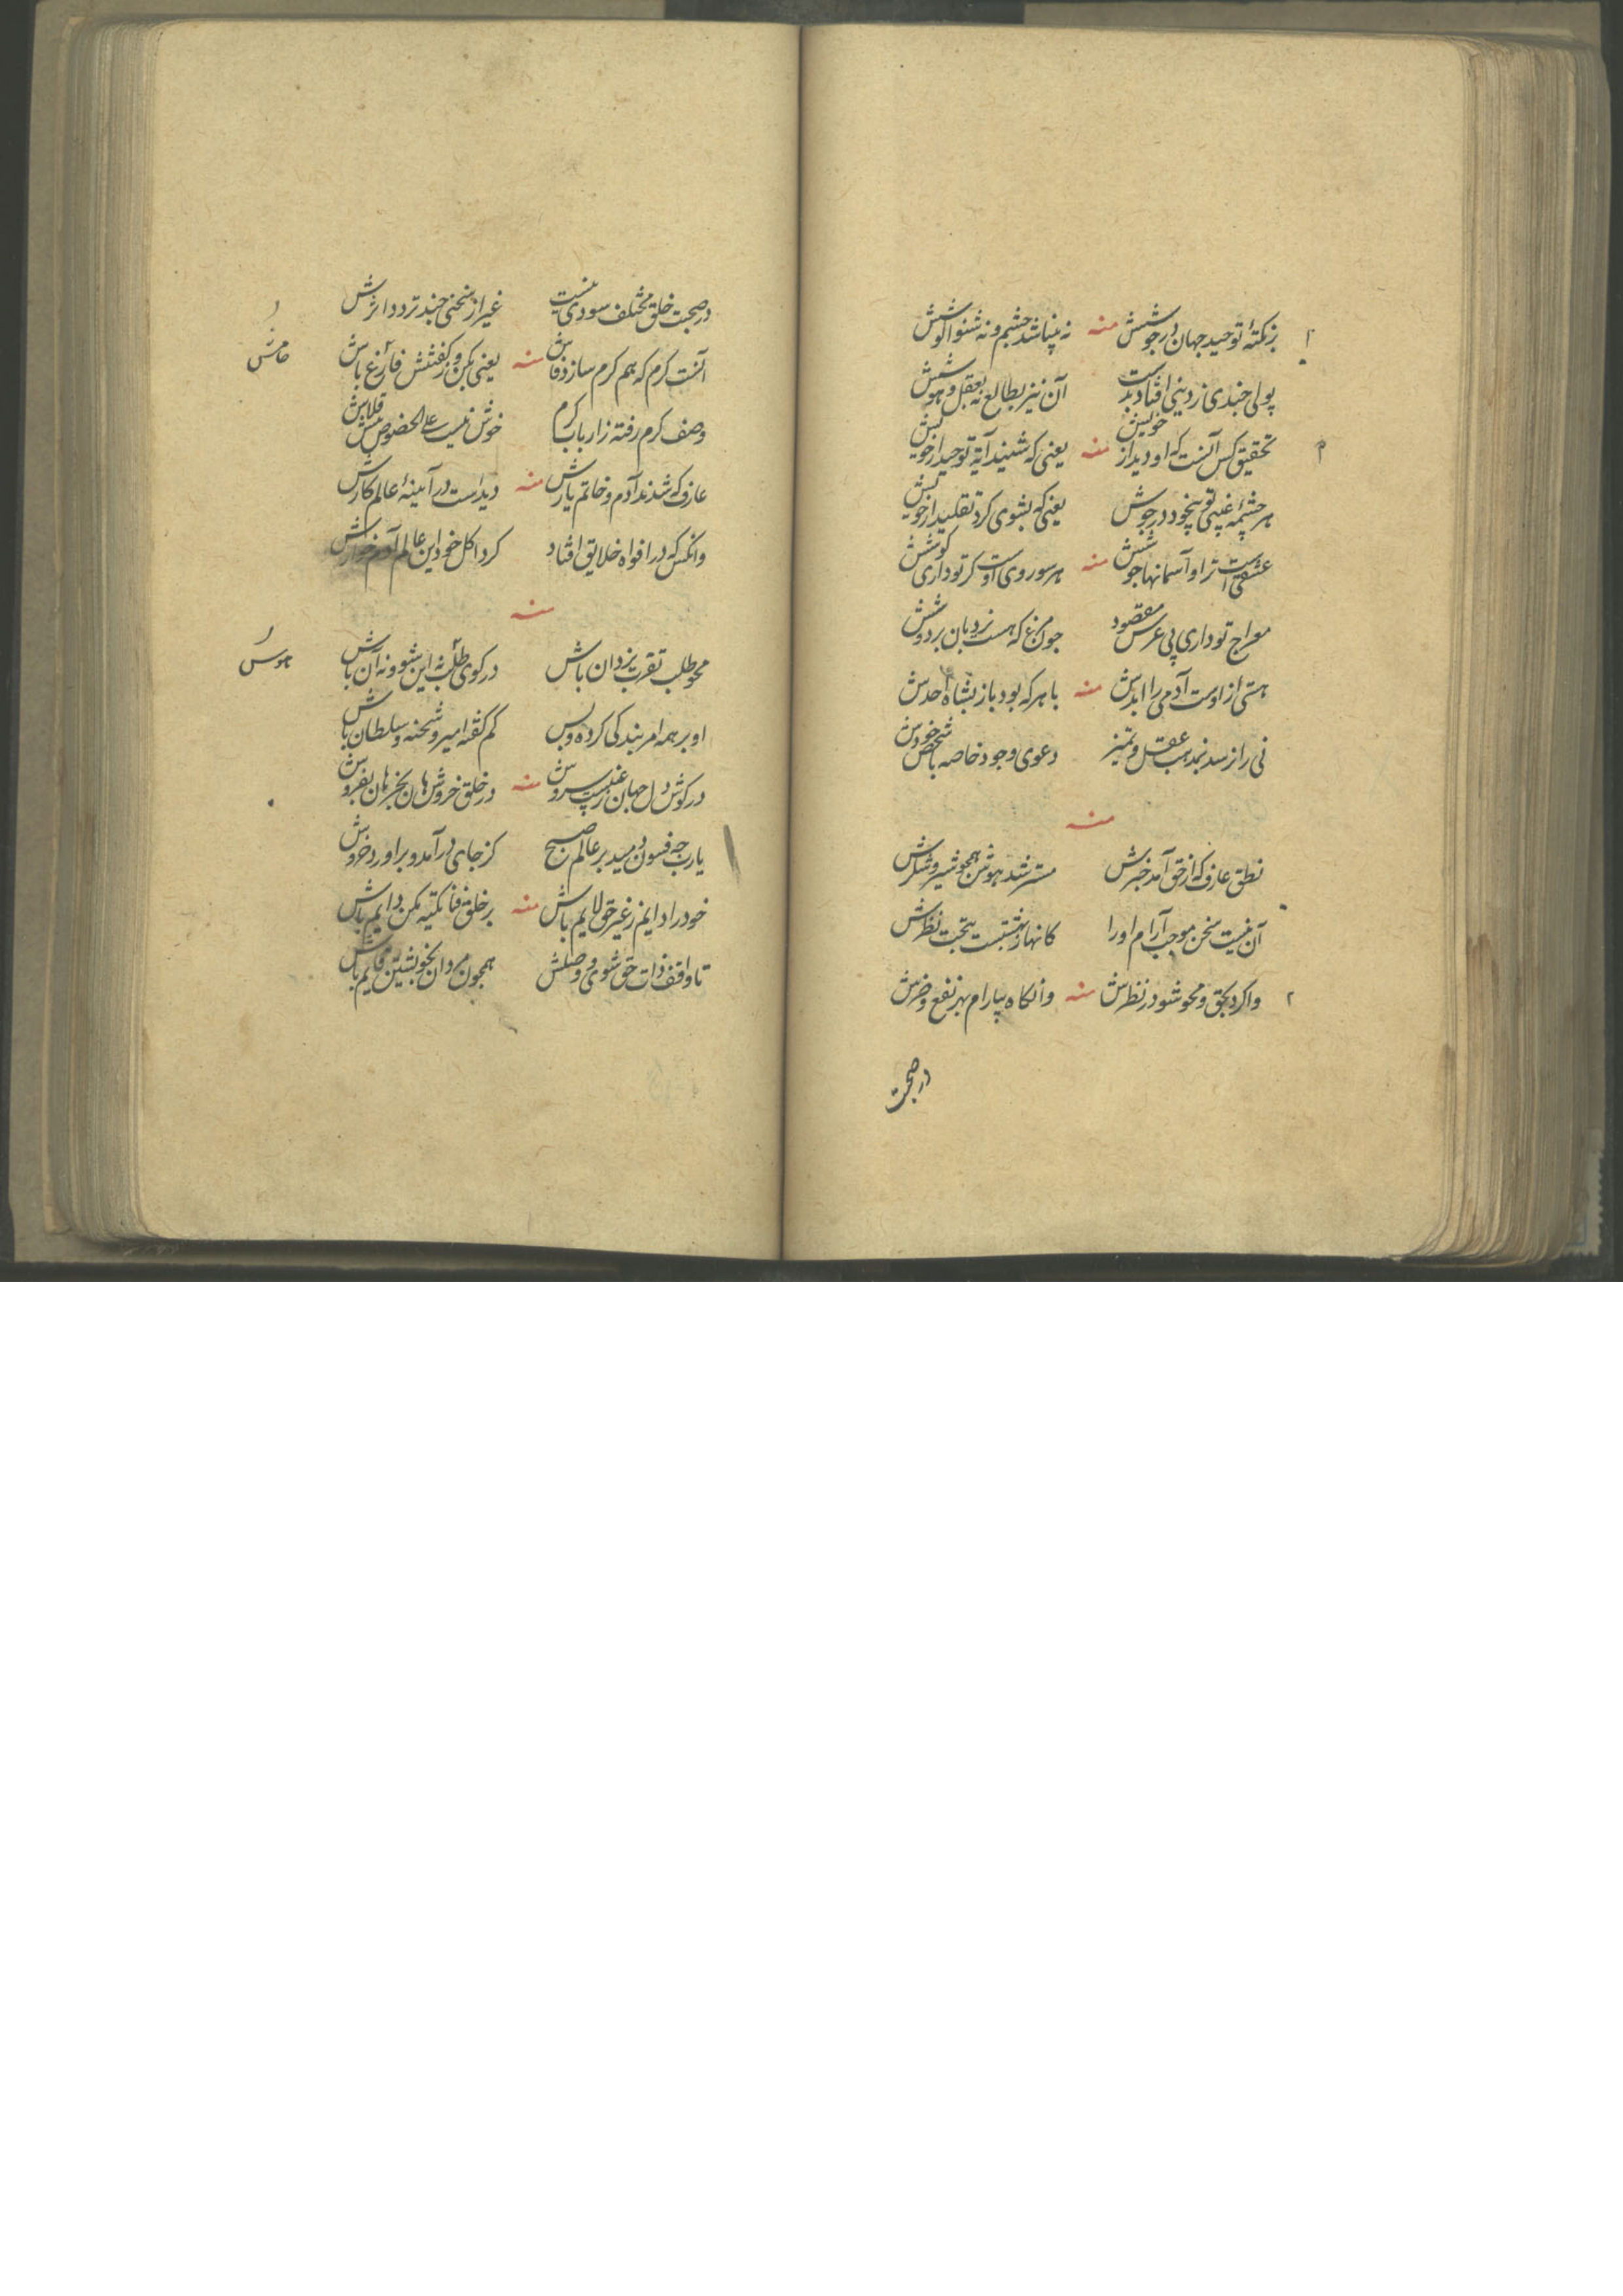 بر نکتهٔ توحید جهان در جوشش منه نه بینا شد چشم و نه شنوا گوشش
پولی چندی ز دینی افتاد بدست آن نیز بطالع نه بعقل و هوشش
تحقیق کس آنست که او دید از خویش منه یعنی که شنید آیهٔ توحید از خویش
هر چشمهٔ غیبی تو بیخود در جوش یعنی که بشوی کرد تقلید از خویش
عشقی است ترا و آسمانها جوشش منه هر سو روی اوست کر تو داری کوشش
معراج تو داری پی عرس مقصود چون مرغ که هست نردبان بر دوشش
هستی از اوست آدمی را ابدش منه با هر که بود باز بشاه احدش
نی را نرسد بمذهب عقل و تمیز دعوی وجود خاصه با شخص خودش
منه
نطق عارف که از حق آمد خبرش مستر شد هوش همچو شیر و شکرش
آن نیست سخن موجب آرام او را کانها ز بهشتست بتحت نظرش
وا کرد بحق و محو شود در نظرش منه وانگاه بیارام بهر نفع و ضرش
در صحبت
در صحبت خلق مختلف سودی نیست غیر از سخنی چند تردد اثرش
آنست کرم که هم کرم سازد فاش منه یعنی بکن و ز گفتنش فارغ باش
وصف کرم رفته ز ارباب کرم خوش نیست علی الخصوص پیش قلاش
عارف که شدند آدم و خاتم یارش منه دیدست در آیینهٔ عالم کارش
وانکس که در افواه خلایق افتاد کرد اکل خود این عالم آدم خوارش
منه
محو طلب تقرب یزدان باش در کوی طلب نه این شو و نه آن باش
او بر همه امر بندگی کرده و بس کم گفته امیر و شحنه و سلطان باش
در گوش دل جهان ز غیبست سروش منه در خلق خروش هان بخر هان بفروش
یارب چه فسون دمید بر عالم صبح کز جای در آمد و بر آورد خروش
خود را دایم ز غیر حق لایم باش منه بر خلق فنا تکیه مکن دایم باش
تا واقف ذات حق شوی و وصلش همچون مردان بخویشتن قایم باش